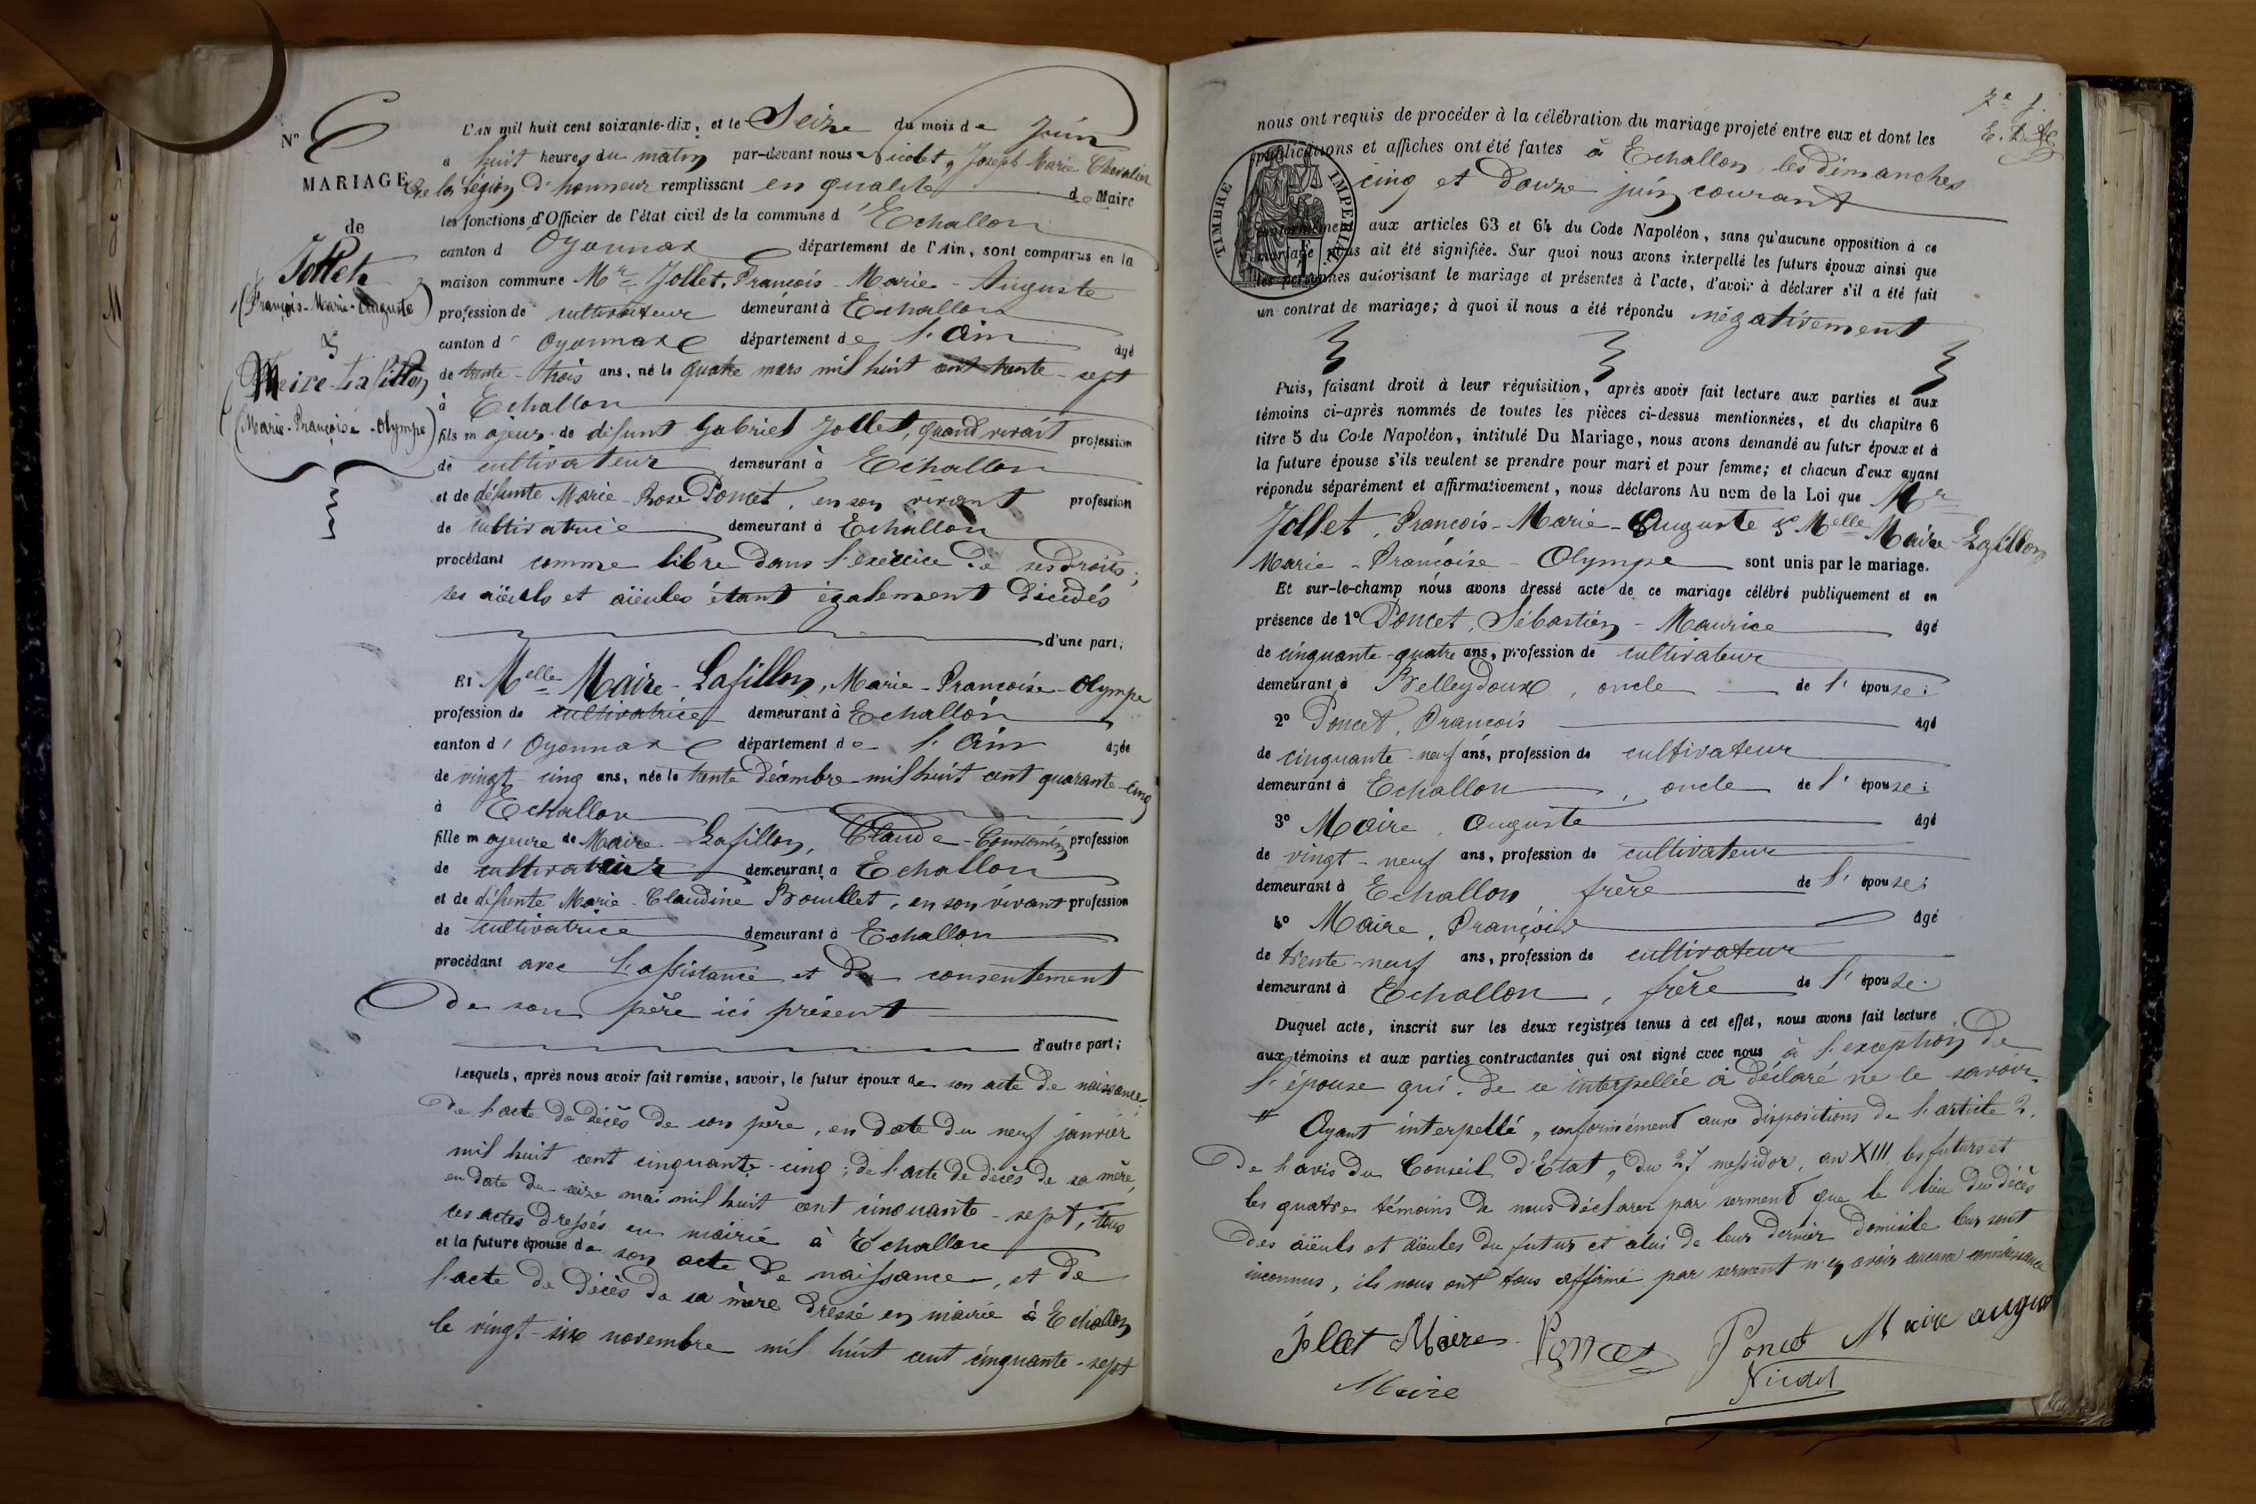 N° 6
MARIAGE
de
Jollet
(François-Marie-Auguste)
&
Maire-Lafillon
(Marie-Françoise-Olympe)
L'AN mil huit cent soixante-dix, et le Seize du mois de Juin
à huit heures du matin par-devant nous Nicolet, Joseph Marie Chevalier
de la légion d'honneur remplissant en qualité de Maire
les fonctions d'Officier de l'état civil de la commune d'Echallon
canton d'Oyonnax département de l'Ain, sont comparus en la
maison commune Mr Jollet, François-Marie-Auguste
profession de cultivateur demeurant à Echallon
canton d'Oyonnax département de l'Ain âgé
de trente-trois ans, né le quatre mars mil huit cent trente-sept
à Echallon
fils majeur de défunt Gabriel Jollet, quand vivait profession
de cultivateur demeurant à Echallon
et de défunte Marie-Rose Poncet, en son vivant profession
de cultivatrice demeurant à Echallon
procédant comme libre dans l'exercice de ses droits;
ses aïeuls et aïeules étant également décédés
d'une part;
Et Melle Maire-Lafillon, Marie-Françoise-Olympe
profession de cultivatrice demeurant à Echallon
canton d'Oyonnax département de l'Ain âgée
de vingt-cinq ans, née le trente décembre mil huit cent quarante-cinq
à Echallon
fille majeure de Maire-Lafillon, Claude- profession
de cultivateur demeurant à Echallon
et de défunte Marie-Claudine Bouillet, en son vivant profession
de cultivatrice demeurant à Echallon
procédant avec l'assistance et du consentement
de son père ici présent
d'autre part;
Lesquels, après nous avoir fait remise, savoir, le futur époux de son acte de naissance,
de l'acte de décès de son père, en date du neuf janvier
mil huit cent cinquante-cinq; de l'acte de décès de sa mère,
en date du seize mai mil huit cent cinquante-sept, tous
ces actes dressés en mairie à Echallon
et la future épouse de son acte de naissance, et de
l'acte de décès de sa mère dressé en mairie à Echallon
le vingt-six novembre mil huit cent cinquante-sept
nous ont requis de procéder à la célébration du mariage projeté entre eux et dont les
publications et affiches ont été faites à Echallon, les dimanches
cinq et douze juin courant
TIMBRE IMPERIAL
conformément aux articles 63 et 64 du Code Napoléon, sans qu'aucune opposition à ce
mariage nous ait été signifiée. Sur quoi nous avons interpellé les futurs époux ainsi que
les personnes autorisant le mariage et présentes à l'acte, d'avoir à déclarer s'il a été fait
un contrat de mariage; à quoi il nous a été répondu négativement
Puis, faisant droit à leur réquisition, après avoir fait lecture aux parties et aux
témoins ci-après nommés de toutes les pièces ci-dessus mentionnées, et du chapitre 6
titre 5 du Code Napoléon, intitulé Du Mariage, nous avons demandé au futur époux et à
la future épouse s'ils veulent se prendre pour mari et pour femme; et chacun d'eux ayant
répondu séparément et affirmativement, nous déclarons Au nom de la Loi que Mr
Jollet, François-Marie-Auguste & Melle Maire-Lafillon
Marie-Françoise-Olympe sont unis par le mariage.
Et sur-le-champ nous avons dressé acte de ce mariage célébré publiquement et en
présence de 1° Poncet, Sébastien-Maurice âgé
de cinquante-quatre ans, profession de cultivateur
demeurant à Belleydoux, oncle de l'épouse;
2° Poncet, François âgé
de cinquante-neuf ans, profession de cultivateur
demeurant à Echallon, oncle de l'épouse;
3° Maire, Auguste âgé
de vingt-neuf ans, profession de cultivateur
demeurant à Echallon frère de l'épouse;
4° Maire, François âgé
de trente-neuf ans, profession de cultivateur
demeurant à Echallon, frère de l'épouse.
Duquel acte, inscrit sur les deux registres tenus à cet effet, nous avons fait lecture
aux témoins et aux parties contractantes qui ont signé avec nous à l'exception de
l'épouse qui, de ce interpellée a déclaré ne le savoir.
Ayant interpellé, conformément aux dispositions de l'article 2,
de l'avis du Conseil d'Etat, du 27 messidor, an XIII, les futurs et
les quatre témoins de nous déclarer par serment que le lieu du décès
des aïeuls et aïeules du futur et celui de leur dernier domicile leur sont
inconnus, ils nous ont tous affirmé par serment n'en avoir aucune connaissance
Jollet Maire Poncet Poncet Maire august
Maire Nicolet